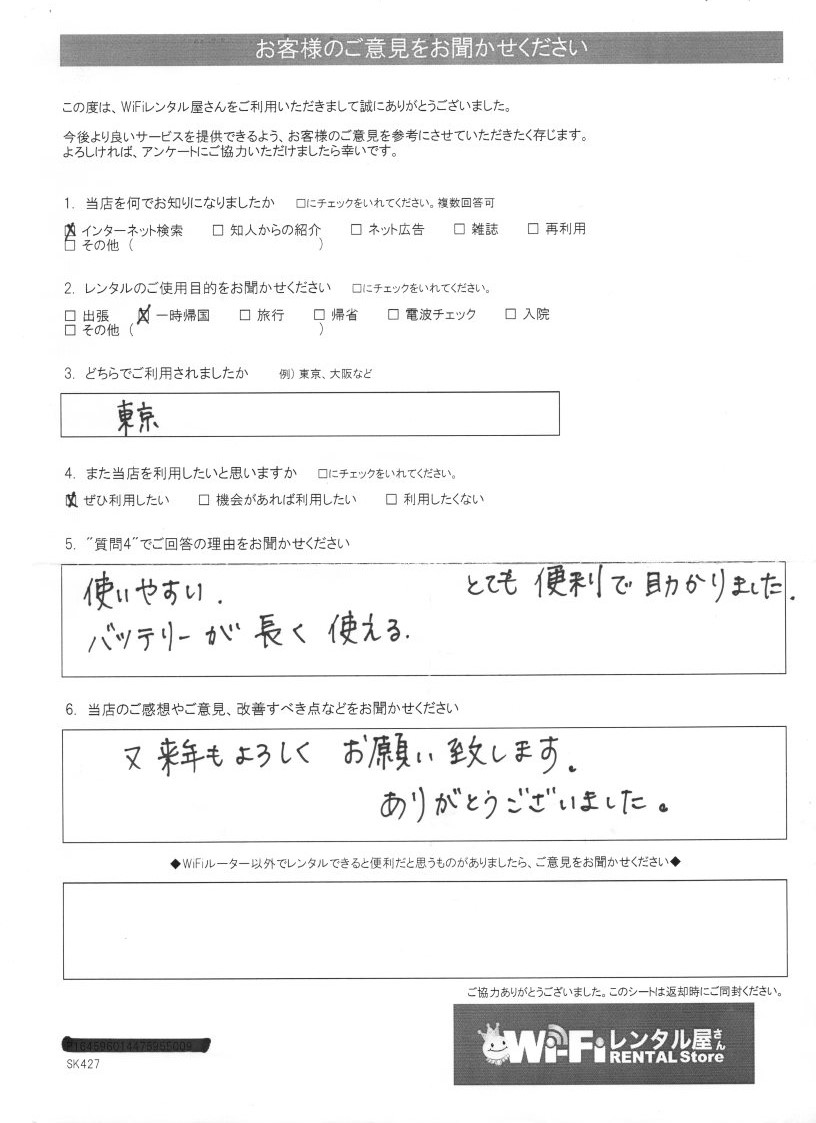 お客様のご意見をお聞かせください
この度は、WiFiレンタル屋さんをご利用いただきまして誠にありがとうございました。
今後より良いサービスを提供できるよう、お客様のご意見を参考にさせていただきたく存じます。
よろしければ、アンケートにご協力いただけましたら幸いです。
1. 当店を何でお知りになりましたか □にチェックをいれてください。複数回答可
☒ インターネット検索 □ 知人からの紹介 □ ネット広告 □ 雑誌 □ 再利用
□ その他 ( )
2. レンタルのご使用目的をお聞かせください □にチェックをいれてください。
□ 出張 ☒ 一時帰国 □ 旅行 □ 帰省 □ 電波チェック □ 入院
□ その他 ( )
3. どちらでご利用されましたか 例) 東京、大阪など
東京
4. また当店を利用したいと思いますか □にチェックをいれてください。
☒ ぜひ利用したい □ 機会があれば利用したい □ 利用したくない
5. "質問4"でご回答の理由をお聞かせください
使いやすい. とても便利で助かりました.
バッテリーが長く使える.
6. 当店のご感想やご意見、改善すべき点などをお聞かせください
又来年もよろしくお願い致します。
ありがとうございました。
◆WiFiルーター以外でレンタルできると便利だと思うものがありましたら、ご意見をお聞かせください◆
ご協力ありがとうございました。このシートは返却時にご同封ください。
Wi-Fiレンタル屋さん
RENTAL Store
SK427